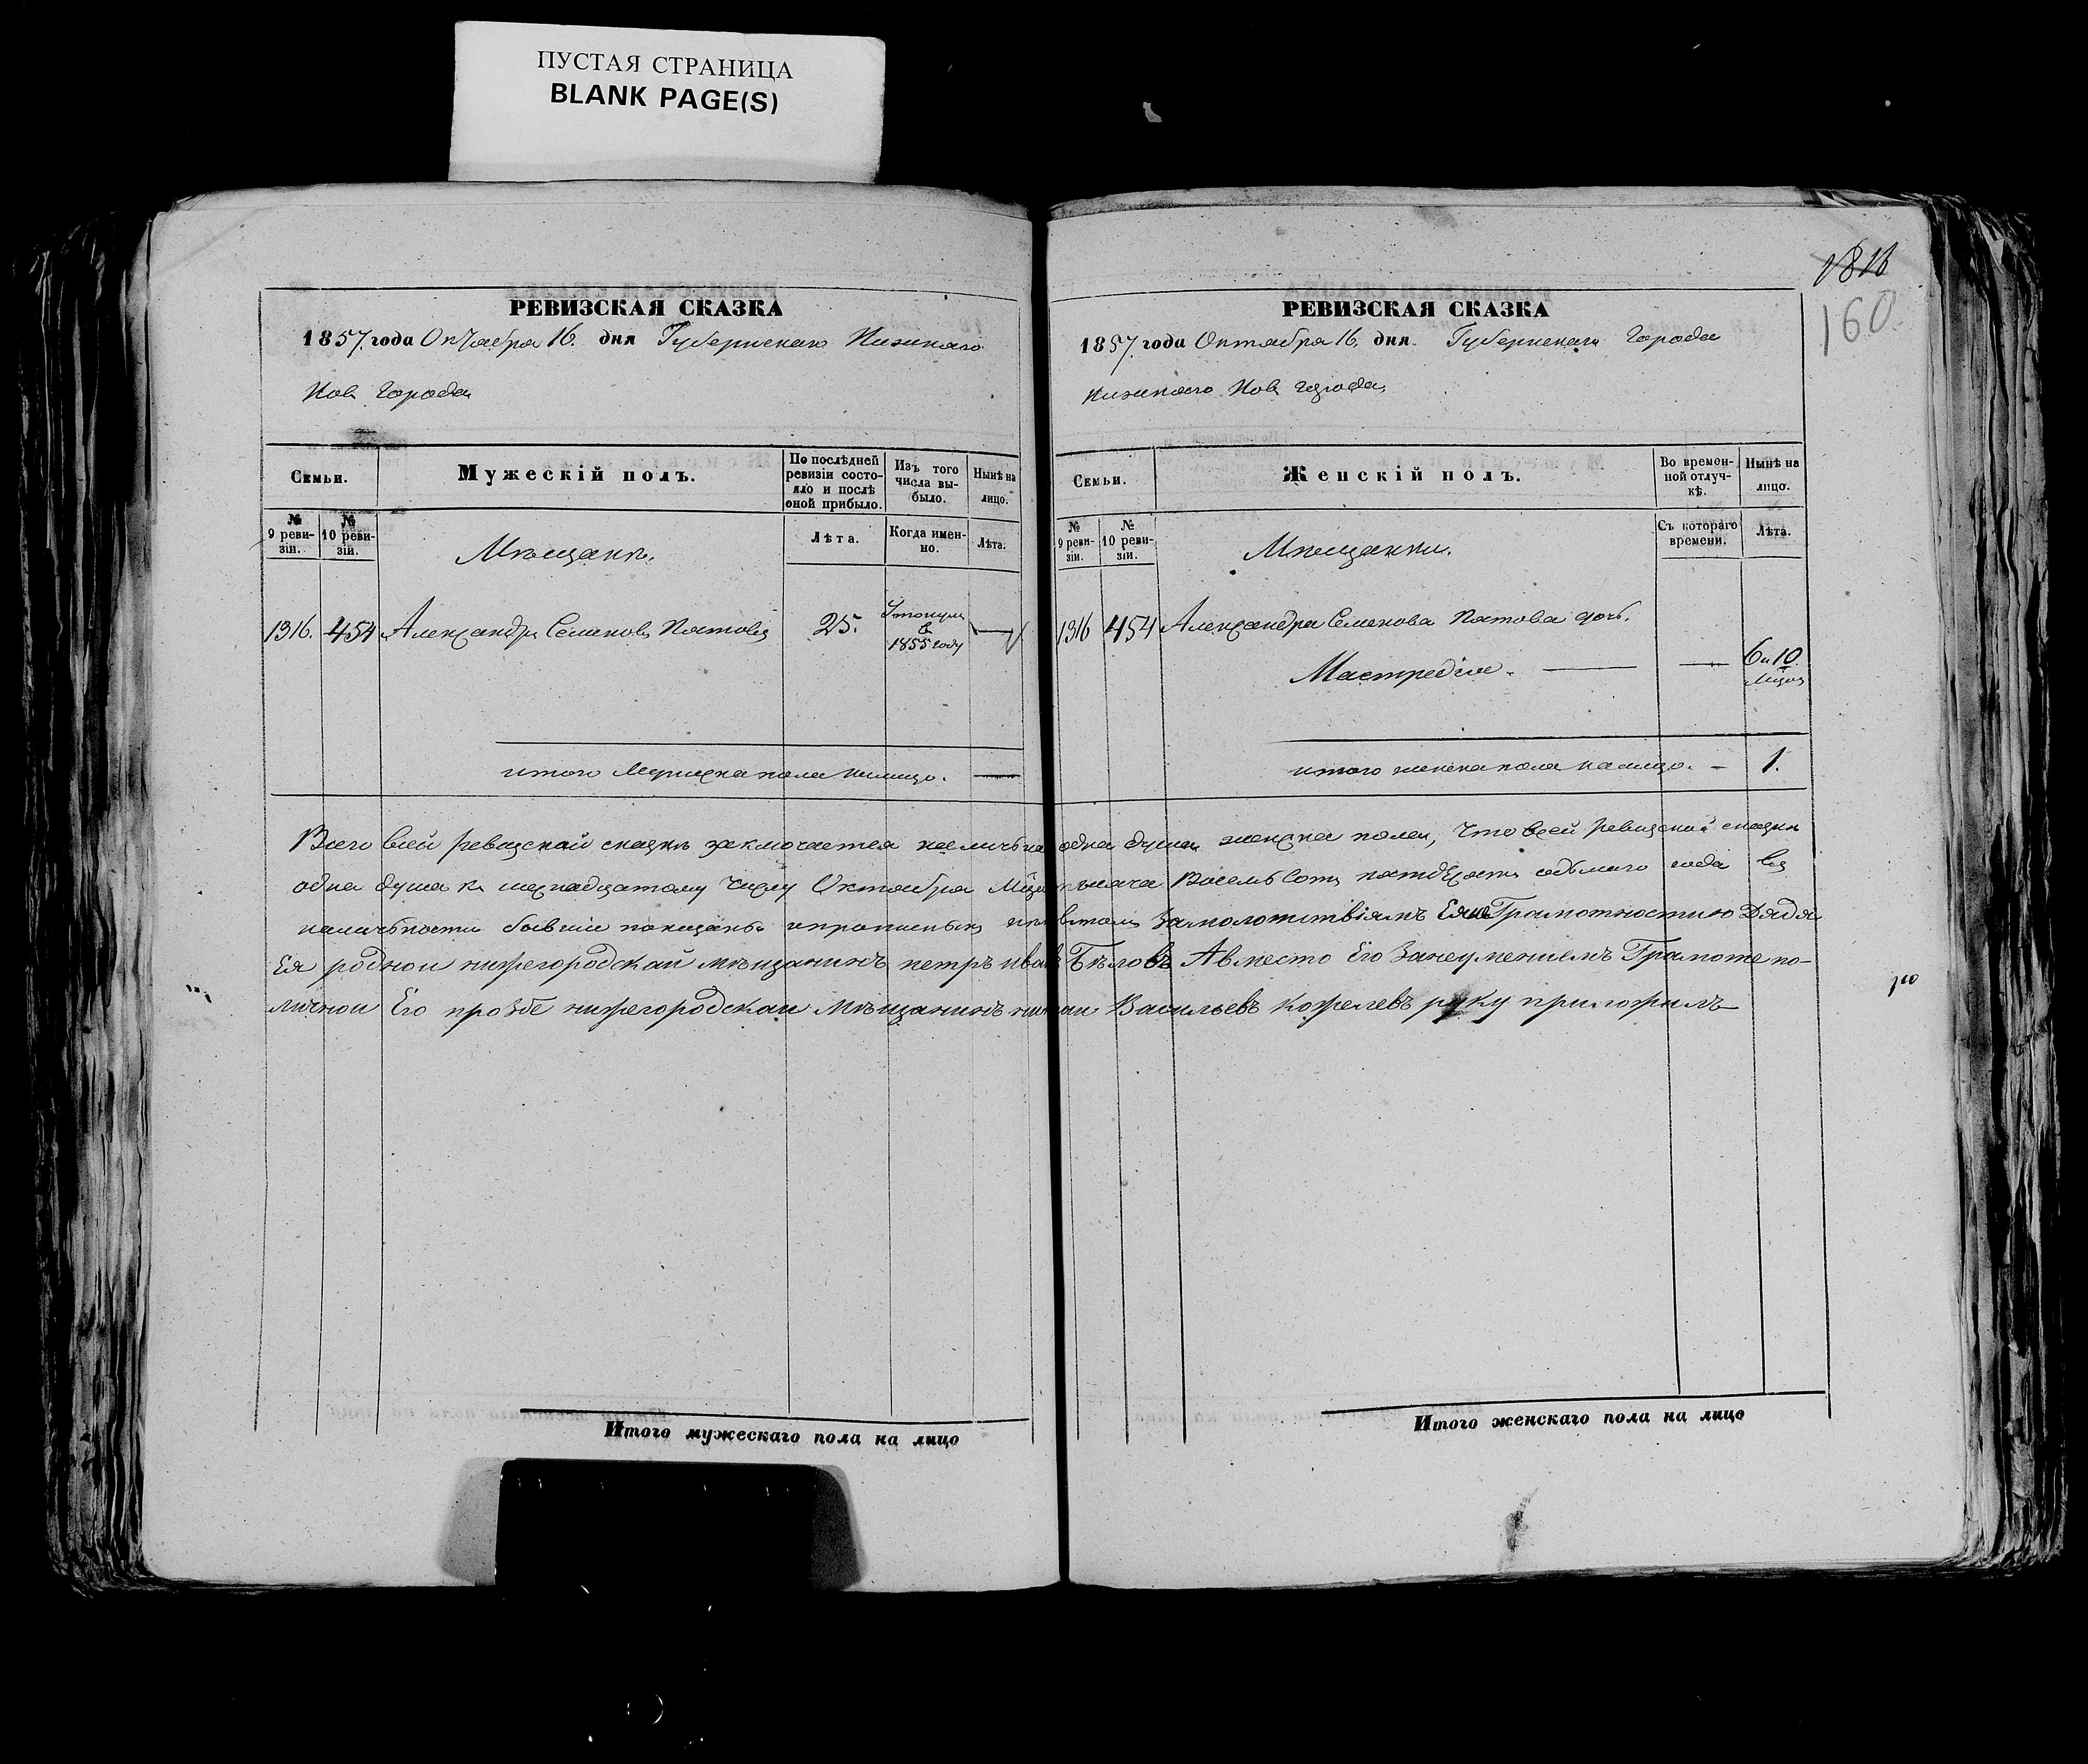 ПУСТАЯ СТРАНИЦА
BLANK PAGE(S)
РЕВИЗСКАЯ СКАЗКА
1857. года Октября 16. дня Губернскаго Нижняго
Нов Города
Семьи.
Мужескій полъ.
По послѣдней ревизіи состояло и послѣ оной прибыло.
Изъ того числа выбыло.
Нынѣ на лицо.
№ 9 ревизіи.
№ 10 ревизіи.
Мѣщанъ.
Лѣта.
Когда именно.
Лѣта.
1316. 454 Александръ Семеновъ Пятовъ 25. в 1855 году —
итого Мужеска пола налицо. —
Итого мужескаго пола на лицо
1816
160.
РЕВИЗСКАЯ СКАЗКА
1857. года Октября 16. дня Губернскаго Города
Нижняго Нов города,
Семьи.
Женскій полъ.
Во временной отлучкѣ.
Нынѣ на лицо.
№ 9 ревизіи.
№ 10 ревизіи.
Мѣщанки.
Съ котораго времени.
Лѣта.
1316 454 Александра Семенова Пятова дочь.
— — 6 и 10
итого женска пола налицо. — 1.
Всего всей ревизской сказкѣ заключается одна душа женска пола, что всей ревизской сказки
одна душа к шеснадцатому числу Октября тысяча Восемь Сотъ пятдесятъ седьмого года въ
наличьности бывшие показаны Грамотностию Дядя
Ея родной нижегородскай мѣщанинъ петръ ивановъ Бѣловъ Авместо Его Занеуменіемъ Грамоте по-
личнои Его прозбе нижегородскаи Мѣщанинъ Васильевъ руку приложилъ
ю
Итого женскаго пола на лицо